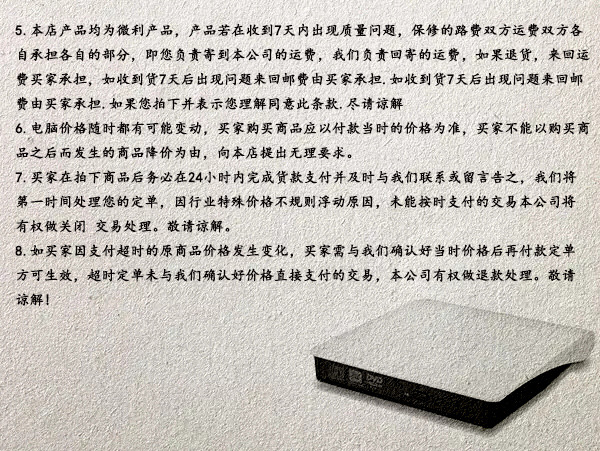 5. 本店产品均为微利产品，产品若在收到7天内出现质量问题，保修的路费双方运费双方各
自承担各自的部分，即您负责寄到本公司的运费，我们负责回寄的运费，如果退货，来回运
费买家承担，如收到货7天后出现问题来回邮费由买家承担.如收到货7天后出现问题来回邮
费由买家承担.如果您拍下并表示您理解同意此条款.尽请谅解
6. 电脑价格随时都有可能变动，买家购买商品应以付款当时的价格为准，买家不能以购买商
品之后而发生的商品降价为由，向本店提出无理要求。
7. 买家在拍下商品后务必在24小时内完成货款支付并及时与我们联系或留言告之，我们将
第一时间处理您的定单，因行业特殊价格不规则浮动原因，未能按时支付的交易本公司将
有权做关闭 交易处理。敬请谅解。
8. 如买家因支付超时的原商品价格发生变化，买家需与我们确认好当时价格后再付款定单
方可生效，超时定单未与我们确认好价格直接支付的交易，本公司有权做退款处理。敬请
谅解！